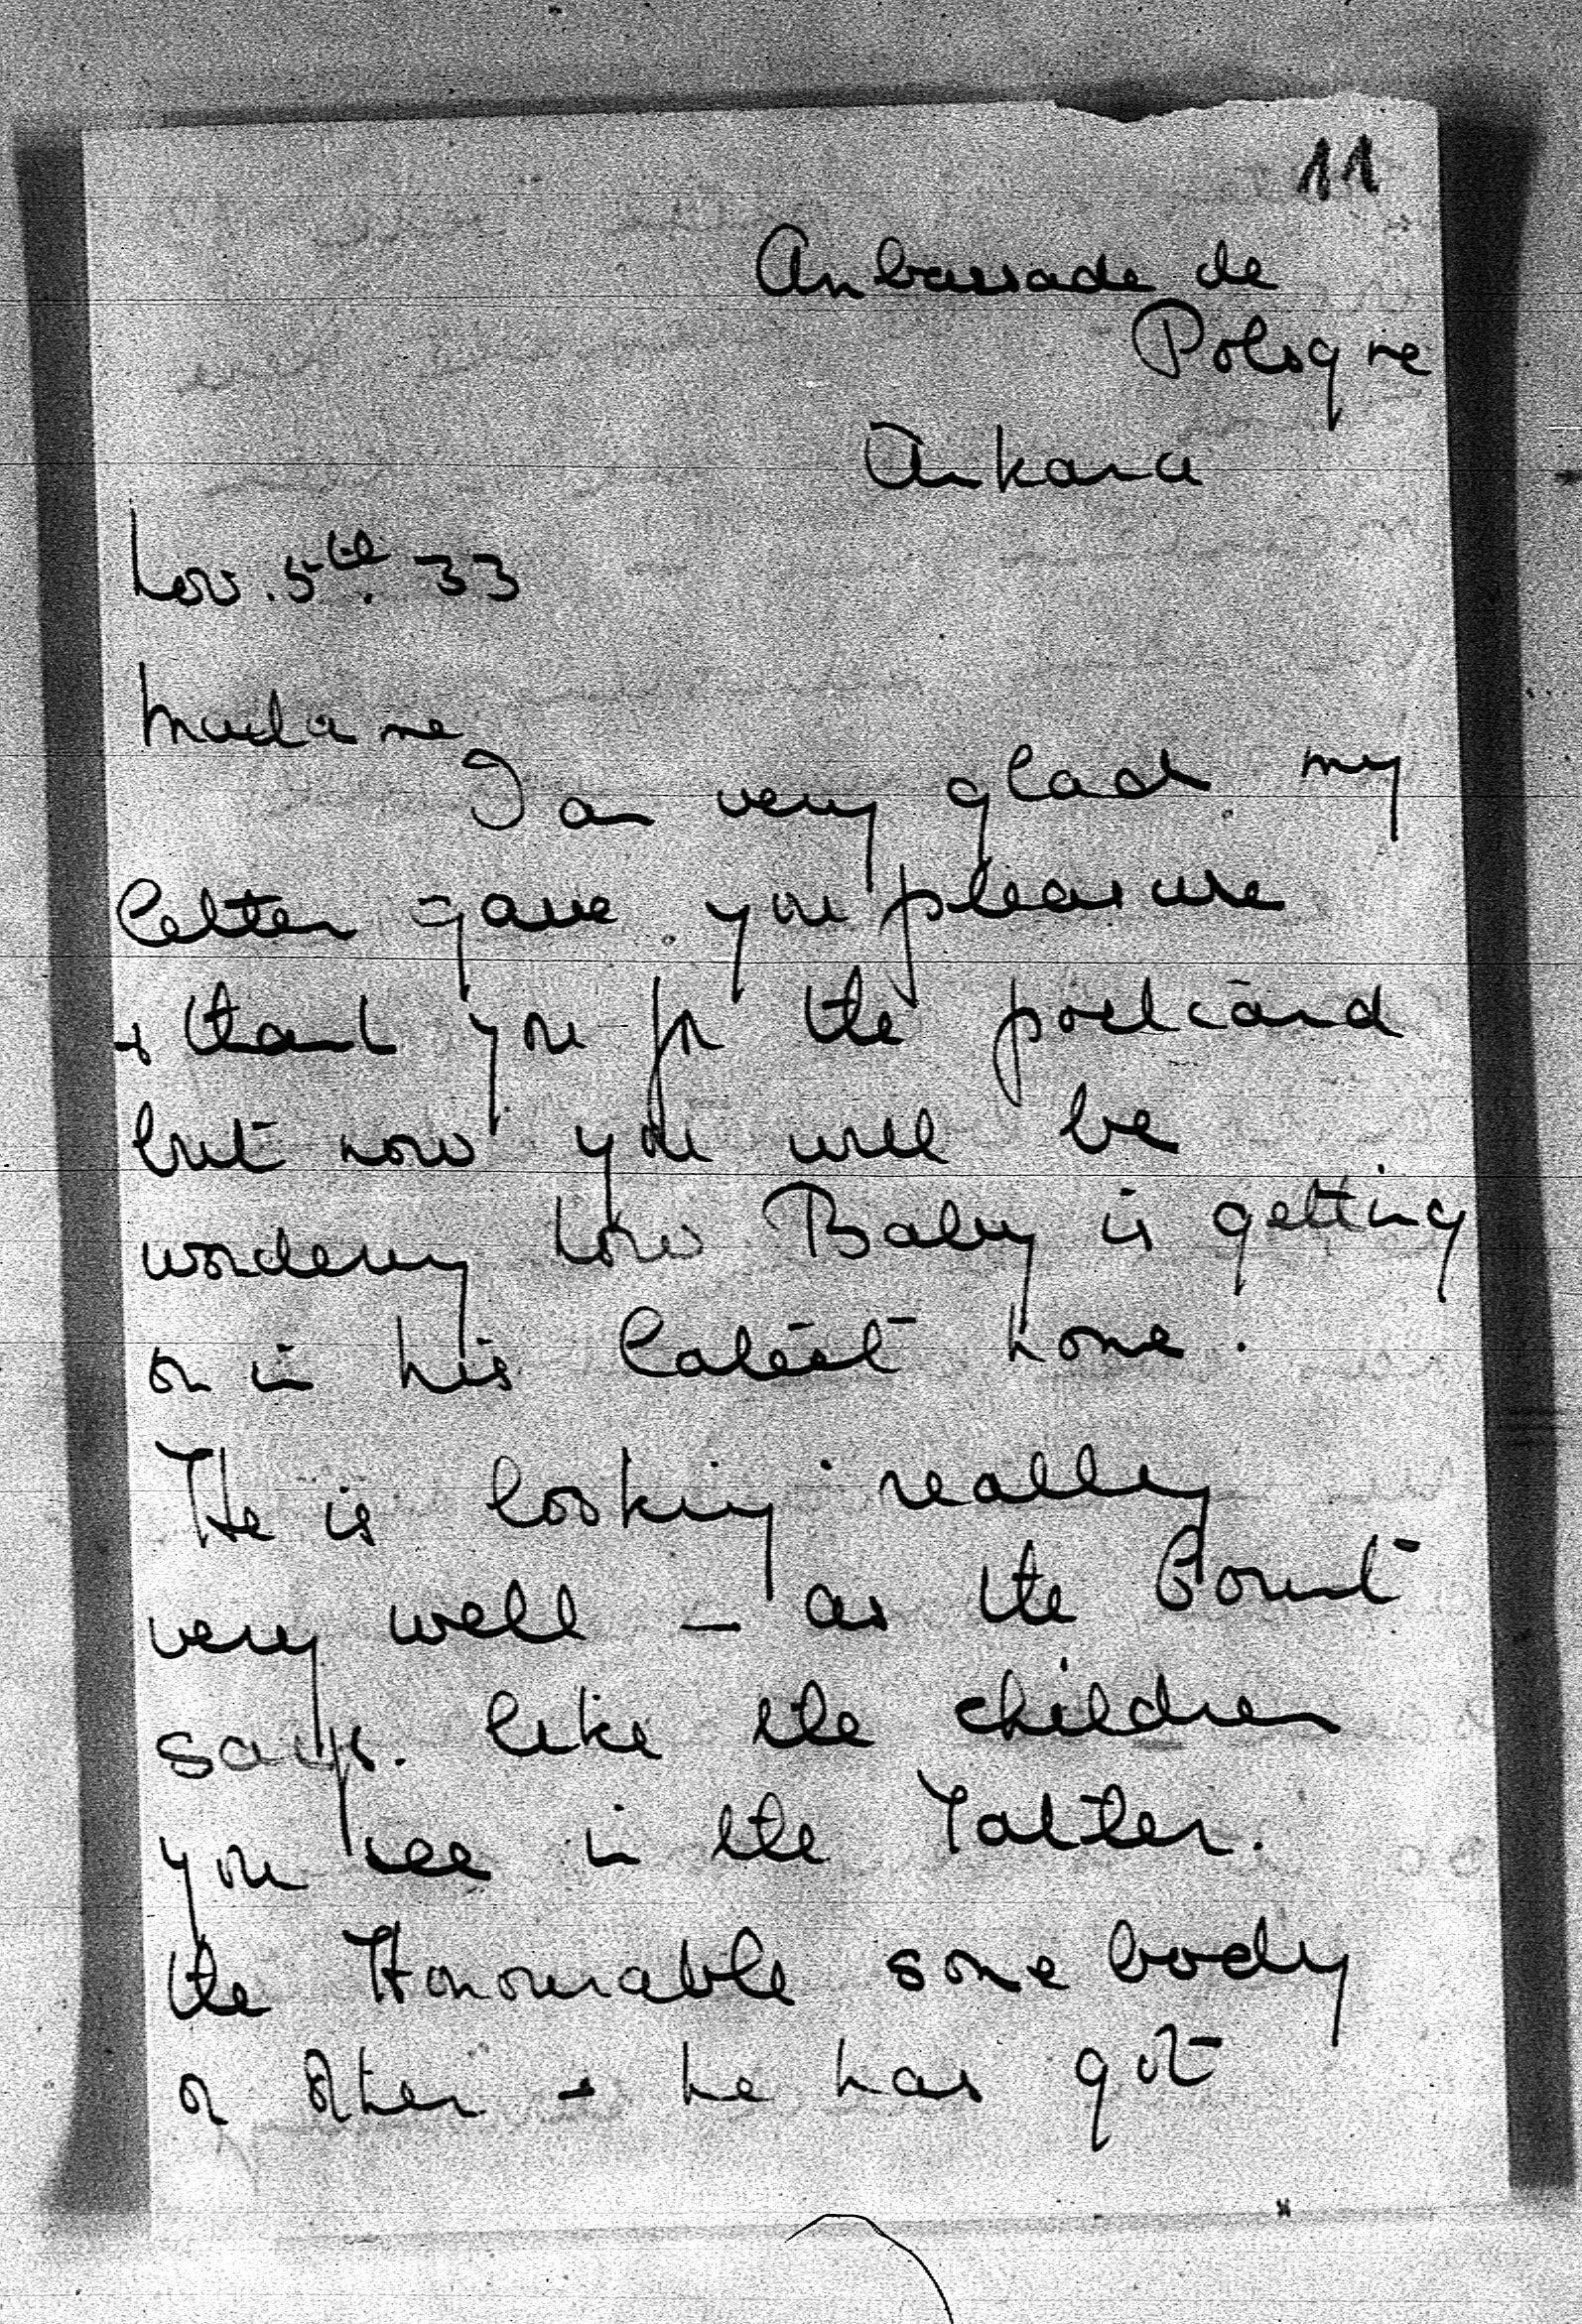 11
Ambassade de
Pologne
Ankara
Nov. 5th. 33
Madame
I am very glad my
letter gave you pleasure
& thank you for the postcard
but now you will be
wondering how Baby is getting
on in his latest home.
He is looking really
very well – as the Count
says. like the children
you see in the Tatler.
the Honourable somebody
or other & he has got